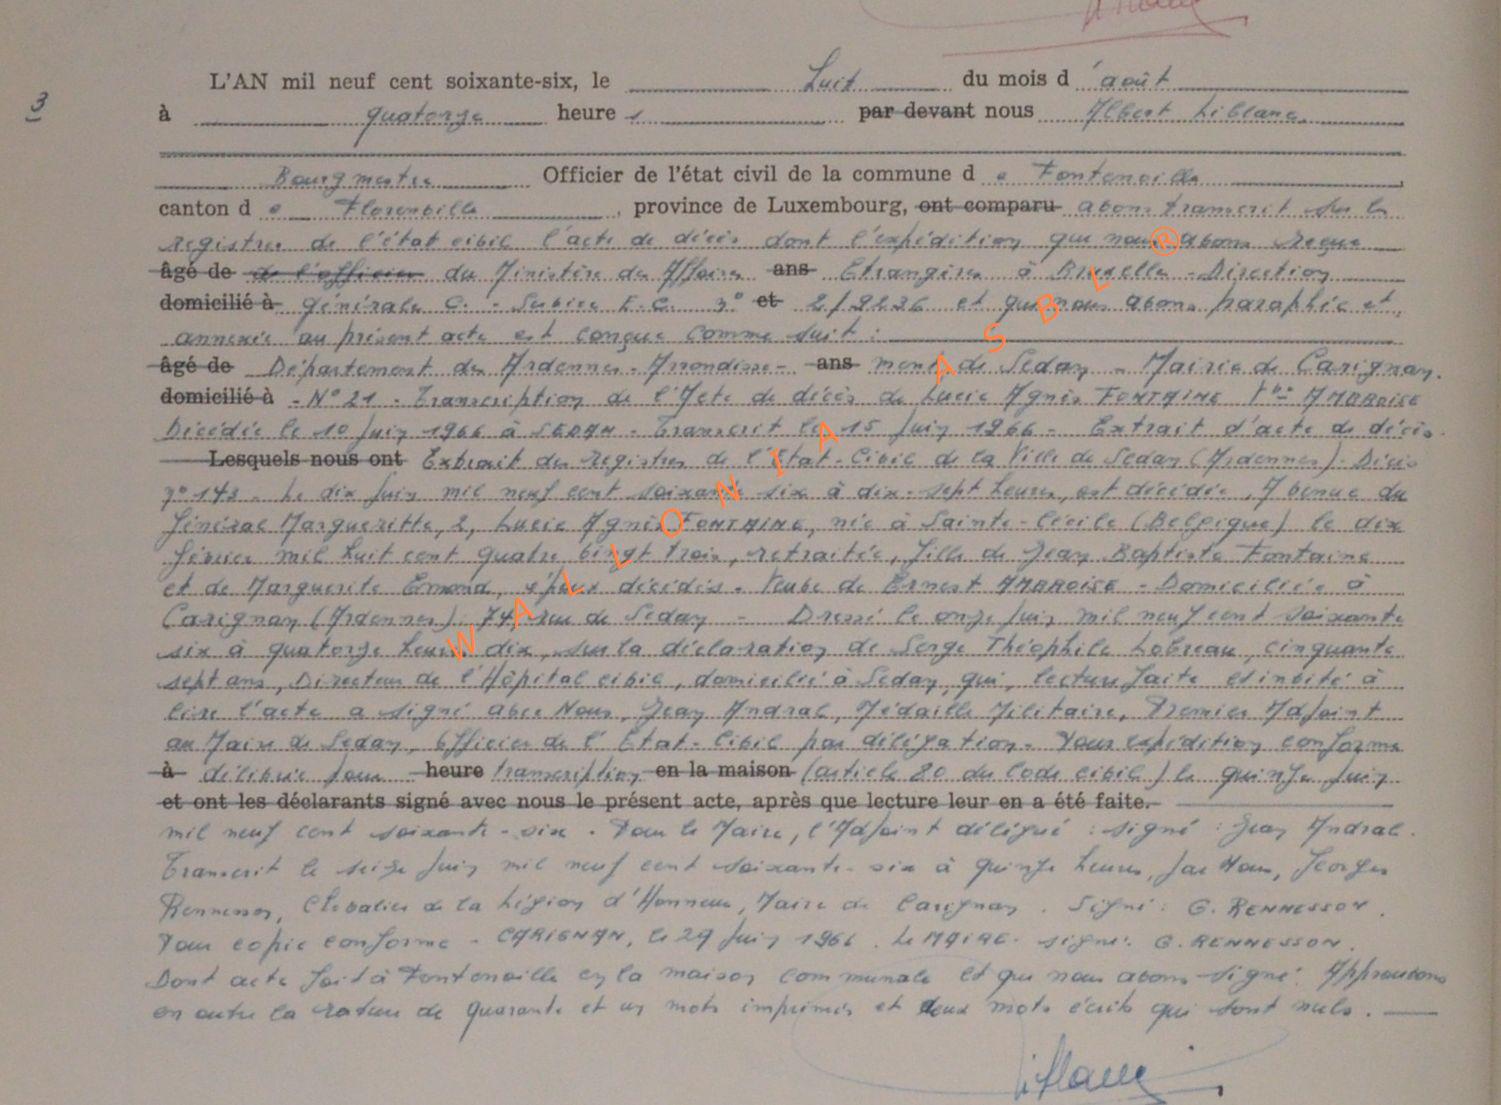 3
L'AN mil neuf cent soixante-six, le huit du mois d'août
à quatorze heures par devant nous Albert Liblanc
Bourgmestre Officier de l'état civil de la commune de Fontenoille
canton de Florenville, province de Luxembourg, ont comparu avons transcrit sur le
registre de l'état civil l'acte de décès dont l'expédition que nous avons reçue
âgé de de l'officier du Ministère des Affaires ans Etrangères à Bruxelles - Direction
domicilié à générale C. - Service E.C. 3° et 2/9236 et que nous avons paraphée et
annexée au présent acte est conçue comme suit :
âgé de Département des Ardennes - Arrondisse- ans ment de Sedan - Mairie de Carignan.
domicilié à - N° 21 - Transcription de l'Acte de décès de Lucie Agnès FONTAINE Vve AMBROISE
Décédée le 10 juin 1966 à SEDAN - Transcrit le 15 juin 1966 - Extrait d'acte de décès.
Lesquels nous ont Extrait des registres de l'Etat-Civil de la Ville de Sedan (Ardennes) - Décès
n° 143 - Le dix juin mil neuf cent soixante six à dix-sept heures, est décédée, Avenue du
Général Margueritte, 2, Lucie Agnès FONTAINE, née à Sainte-Cécile (Belgique) le dix
février mil huit cent quatre vingt trois, retraitée, fille de Jean Baptiste Fontaine
et de Marguerite Emond, époux décédés - Veuve de Ernest AMBROISE - Domiciliée à
Carignan (Ardennes) 74, rue de Sedan - Dressé le onze juin mil neuf cent soixante
six à quatorze heures dix, sur la déclaration de Serge Théophile Lobreau, cinquante
sept ans, Directeur de l'Hôpital civil, domicilié à Sedan, qui, lecture faite et invité à
lire l'acte a signé avec Nous, Jean Andral, Médaille Militaire, Premier Adjoint
au Maire de Sedan, Officier de l'Etat-Civil par délégation - Pour expédition conforme
à délivrée pour heure transcription en la maison (article 80 du Code civil) le quinze juin
et ont les déclarants signé avec nous le présent acte, après que lecture leur en a été faite.-
mil neuf cent soixante-six - Pour le Maire, l'Adjoint délégué : signé : Jean Andral.
Transcrit le seize juin mil neuf cent soixante-six à quinze heures, par Nous, Georges
Rennesson, Chevalier de la Légion d'Honneur, Maire de Carignan. Signé : G. RENNESSON.
Pour copie conforme - CARIGNAN, le 29 juin 1966. Le MAIRE - signé : G. RENNESSON.
Dont acte fait à Fontenoille en la maison communale et que nous avons signé. Approuvons
en outre la rature de quarante et un mots imprimés et deux mots écrits qui sont nuls.
WALLONIA ASBL ®